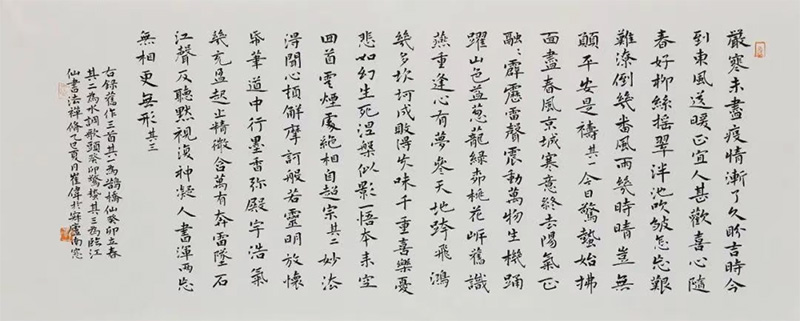 嚴寒未盡疫情漸了久盼吉時今
到東風送暖正宜人甚歡喜心隨
春好柳絲搖翠泮池吹皺怎忘艱
難潦倒幾番風雨幾時晴豈無
顛平安是禱其一今日驚蟄始拂
面盡春風京城寒意終去陽氣正
融融霹靂雷聲震動萬物生機踊
躍山色益蔥蘢綠桃花岍舊識
燕重逢心有夢參天地飛鴻
幾多坎坷成敗得失味千重喜樂憂
悲如幻生死涅槃似影一悟本來空
回首雲煙處絕相自超宗其二妙法
得閒心頓解摩訶般若靈明放懷
筆道中行墨香弥殿宇浩氣
幾充盈起止精微含萬有奔雷墜石
江聲反聽默視復神凝人書渾兩忘
無相更無形其三
右録舊作三首其一爲鵲橋仙癸卯立春
其二爲水調歌頭癸卯驚蟄其三爲臨江
仙書法禪修乙巳夏月崔偉於廬南窗